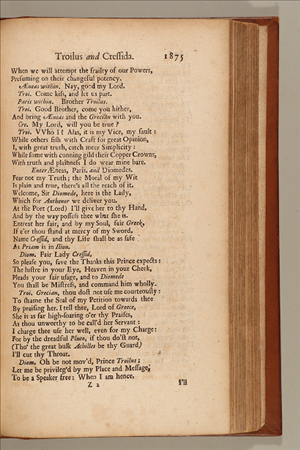 Troilus and Cressida. 1875
When we will attempt the frailty of our Powers,
Presuming on their changeful potency.
Æneas within. Nay, good my Lord.
Troi. Come kiss, and let us part.
Paris within. Brother Troilus.
Troi. Good Brother, come you hither,
And bring Æneas and the Grecian with you.
Cre. My Lord, will you be true?
Troi. VVho I? Alas, it is my Vice, my fault:
While others fish with Craft for great Opinion,
I, with great truth, catch meer Simplicity:
While some with cunning gild their Copper Crowns,
With truth and plainness I do wear mine bare.
Enter Æneas, Paris, and Diomedes.
Fear not my Truth; the Moral of my Wit
Is plain and true, there's all the reach of it.
Welcome, Sir Diomede, here is the Lady,
Which for Anthenor we deliver you.
At the Port (Lord) I'll give her to thy Hand,
And by the way possess thee what she is.
Entreat her fair, and by my Soul, fair Greek,
If e'er thou stand at mercy of my Sword,
Name Cressid, and thy Life shall be as safe
As Priam is in Ilion.
Diom. Fair Lady Cressid,
So please you, save the Thanks this Prince expects:
The lustre in your Eye, Heaven in your Cheek,
Pleads your fair usage, and to Diomede
You shall be Mistress, and command him wholly.
Troi. Grecian, thou dost not use me courteously:
To shame the Seal of my Petition towards thee
By praising her. I tell thee, Lord of Greece,
She is as far high-soaring o'er thy Praises,
As thou unworthy to be call'd her Servant:
I charge thee use her well, even for my Charge:
For by the dreadful Pluto, if thou do'st not,
(Tho' the great bulk Achilles be thy Guard)
I'll cut thy Throat.
Diom. Oh be not mov'd, Prince Troilus;
Let me be privileg'd by my Place and Message,
To be a Speaker free: When I am hence,
Z 2 I'll